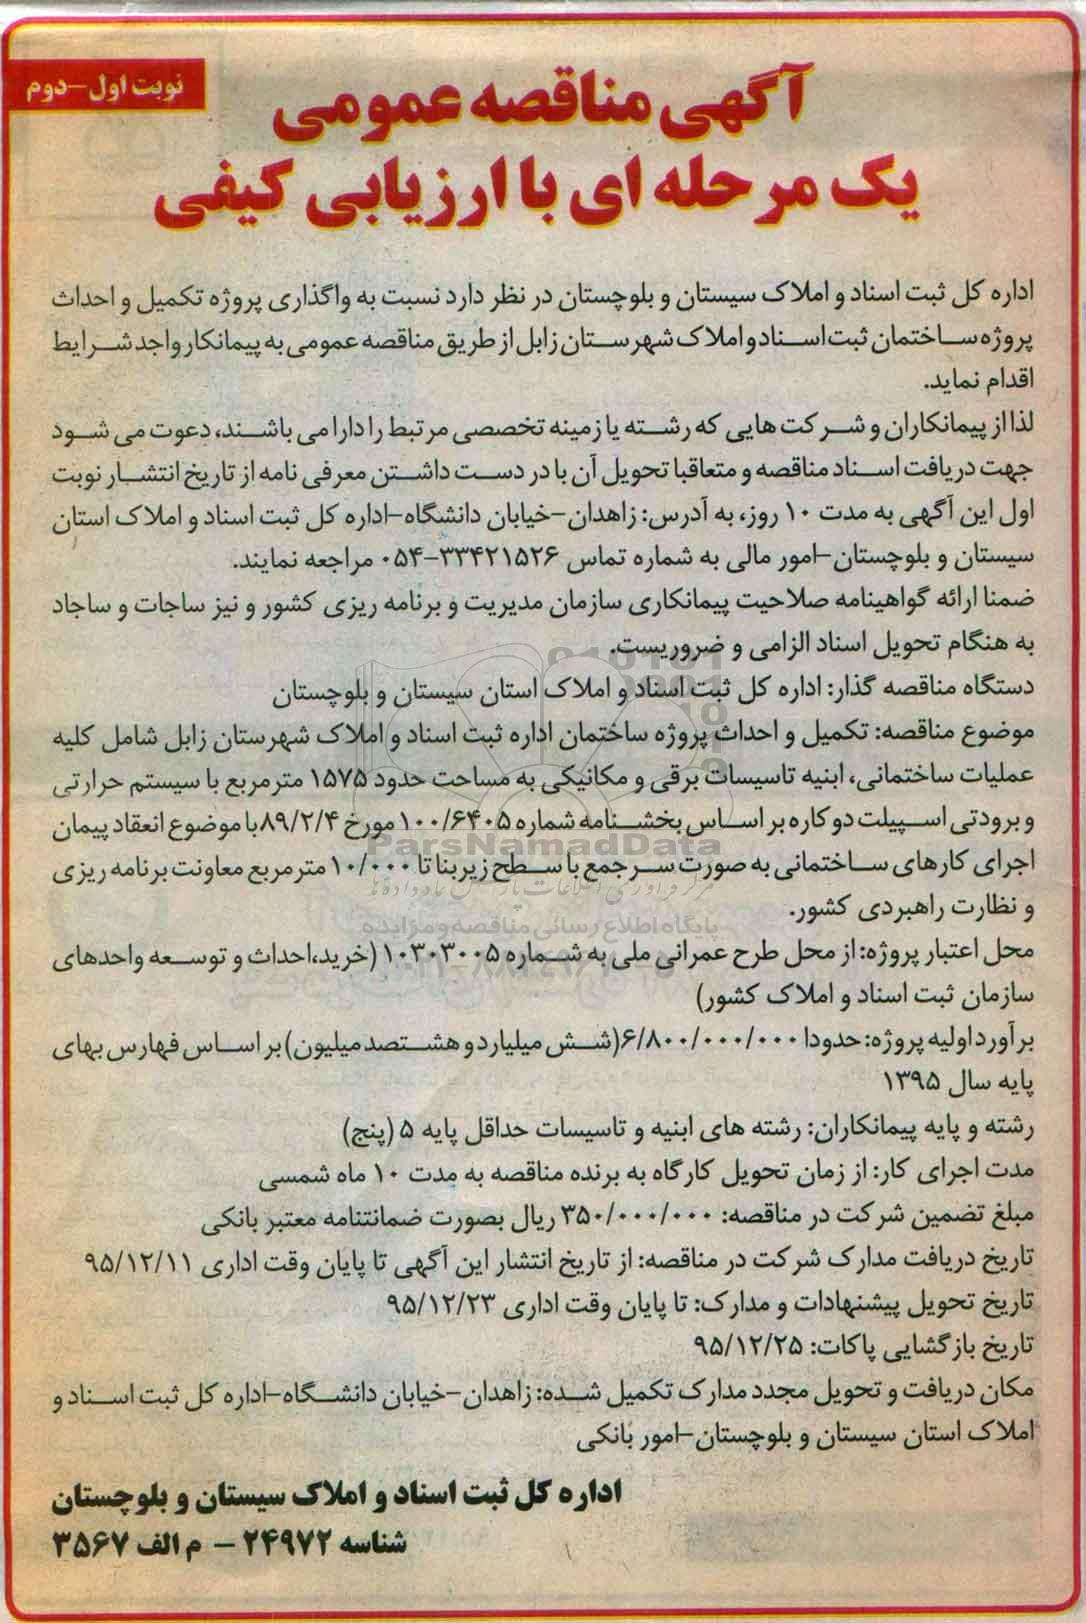 نوبت اول-دوم
آگهی مناقصه عمومی
یک مرحله ای با ارزیابی کیفی
اداره کل ثبت اسناد و املاک سیستان و بلوچستان در نظر دارد نسبت به واگذاری پروژه تکمیل و احداث
پروژه ساختمان ثبت اسناد و املاک شهرستان زابل از طریق مناقصه عمومی به پیمانکار واجد شرایط
اقدام نماید.
لذا از پیمانکاران و شرکت هایی که رشته یا زمینه تخصصی مرتبط را دارا می باشند، دعوت می شود
جهت دریافت اسناد مناقصه و متعاقبا تحویل آن با در دست داشتن معرفی نامه از تاریخ انتشار نوبت
اول این آگهی به مدت ۱۰ روز، به آدرس: زاهدان-خیابان دانشگاه-اداره کل ثبت اسناد و املاک استان
سیستان و بلوچستان-امور مالی به شماره تماس ۳۳۴۲۱۵۲۶-۰۵۴ مراجعه نمایند.
ضمنا ارائه گواهینامه صلاحیت پیمانکاری سازمان مدیریت و برنامه ریزی کشور و نیز ساجات و ساجاد
به هنگام تحویل اسناد الزامی و ضروریست.
دستگاه مناقصه گذار: اداره کل ثبت اسناد و املاک استان سیستان و بلوچستان
موضوع مناقصه: تکمیل و احداث پروژه ساختمان اداره ثبت اسناد و املاک شهرستان زابل شامل کلیه
عملیات ساختمانی، ابنیه تاسیسات برقی و مکانیکی به مساحت حدود ۱۵۷۵ مترمربع با سیستم حرارتی
و برودتی اسپیلت دو کاره بر اساس بخشنامه شماره ۱۰۰/۶۴۰۵ مورخ ۸۹/۲/۴ با موضوع انعقاد پیمان
اجرای کارهای ساختمانی به صورت سرجمع با سطح زیربنا تا ۱۰/۰۰۰ مترمربع معاونت برنامه ریزی
و نظارت راهبردی کشور.
محل اعتبار پروژه: از محل طرح عمرانی ملی به شماره ۱۰۳۰۳۰۰۵ (خرید،احداث و توسعه واحدهای
سازمان ثبت اسناد و املاک کشور)
برآورد اولیه پروژه: حدودا ۶/۸۰۰/۰۰۰/۰۰۰(شش میلیارد و هشتصد میلیون) بر اساس فهارس بهای
پایه سال ۱۳۹۵
رشته و پایه پیمانکاران: رشته های ابنیه و تاسیسات حداقل پایه ۵ (پنج)
مدت اجرای کار: از زمان تحویل کارگاه به برنده مناقصه به مدت ۱۰ ماه شمسی
مبلغ تضمین شرکت در مناقصه: ۳۵۰/۰۰۰/۰۰۰ ریال بصورت ضمانتنامه معتبر بانکی
تاریخ دریافت مدارک شرکت در مناقصه: از تاریخ انتشار این آگهی تا پایان وقت اداری ۹۵/۱۲/۱۱
تاریخ تحویل پیشنهادات و مدارک: تا پایان وقت اداری ۹۵/۱۲/۲۳
تاریخ بازگشایی پاکات: ۹۵/۱۲/۲۵
مکان دریافت و تحویل مجدد مدارک تکمیل شده: زاهدان-خیابان دانشگاه-اداره کل ثبت اسناد و
املاک استان سیستان و بلوچستان-امور بانکی
اداره کل ثبت اسناد و املاک سیستان و بلوچستان
شناسه ۲۴۹۷۲ - م الف ۳۵۶۷
ParsNamadData
پایگاه اطلاع رسانی مناقصه و مزایده